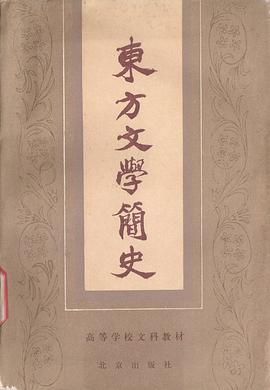 東方文學簡史
高等学校文科教材
北京出版社